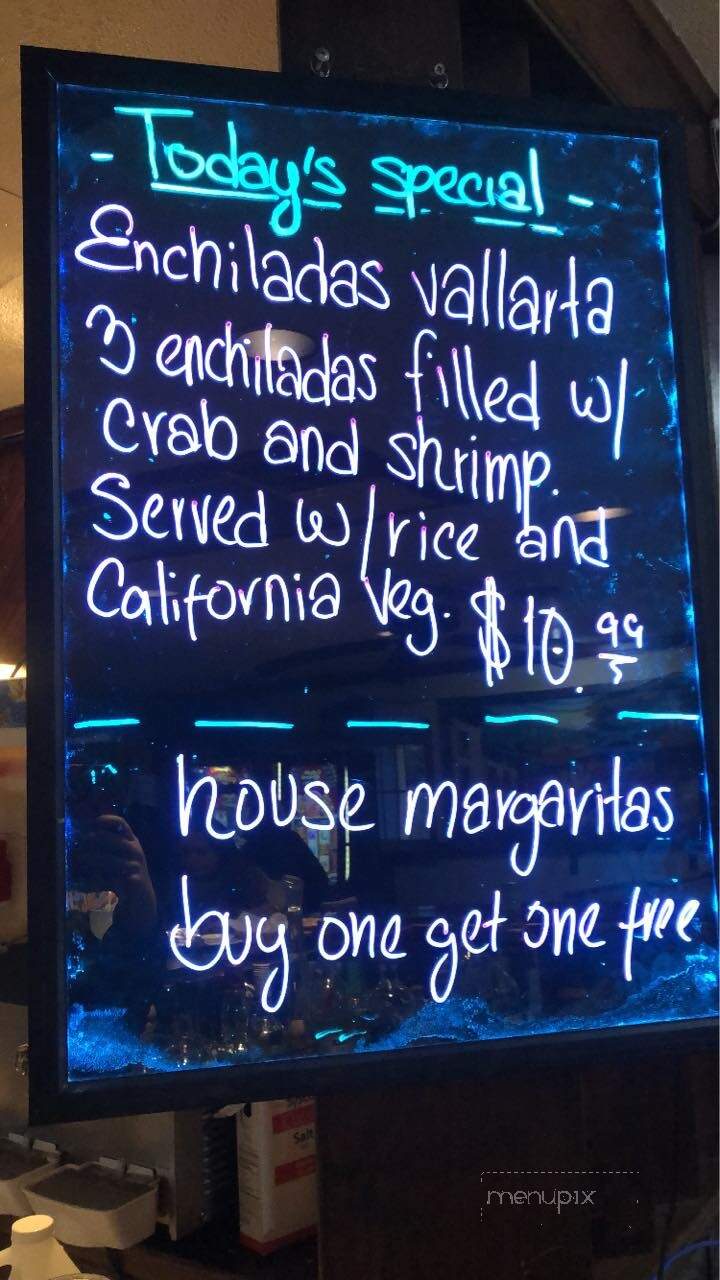 - Today's special -
Enchiladas vallarta
3 enchiladas filled w/
crab and shrimp.
Served w/rice and
California veg. $10.99
house margaritas
buy one get one free
Salt
menupix